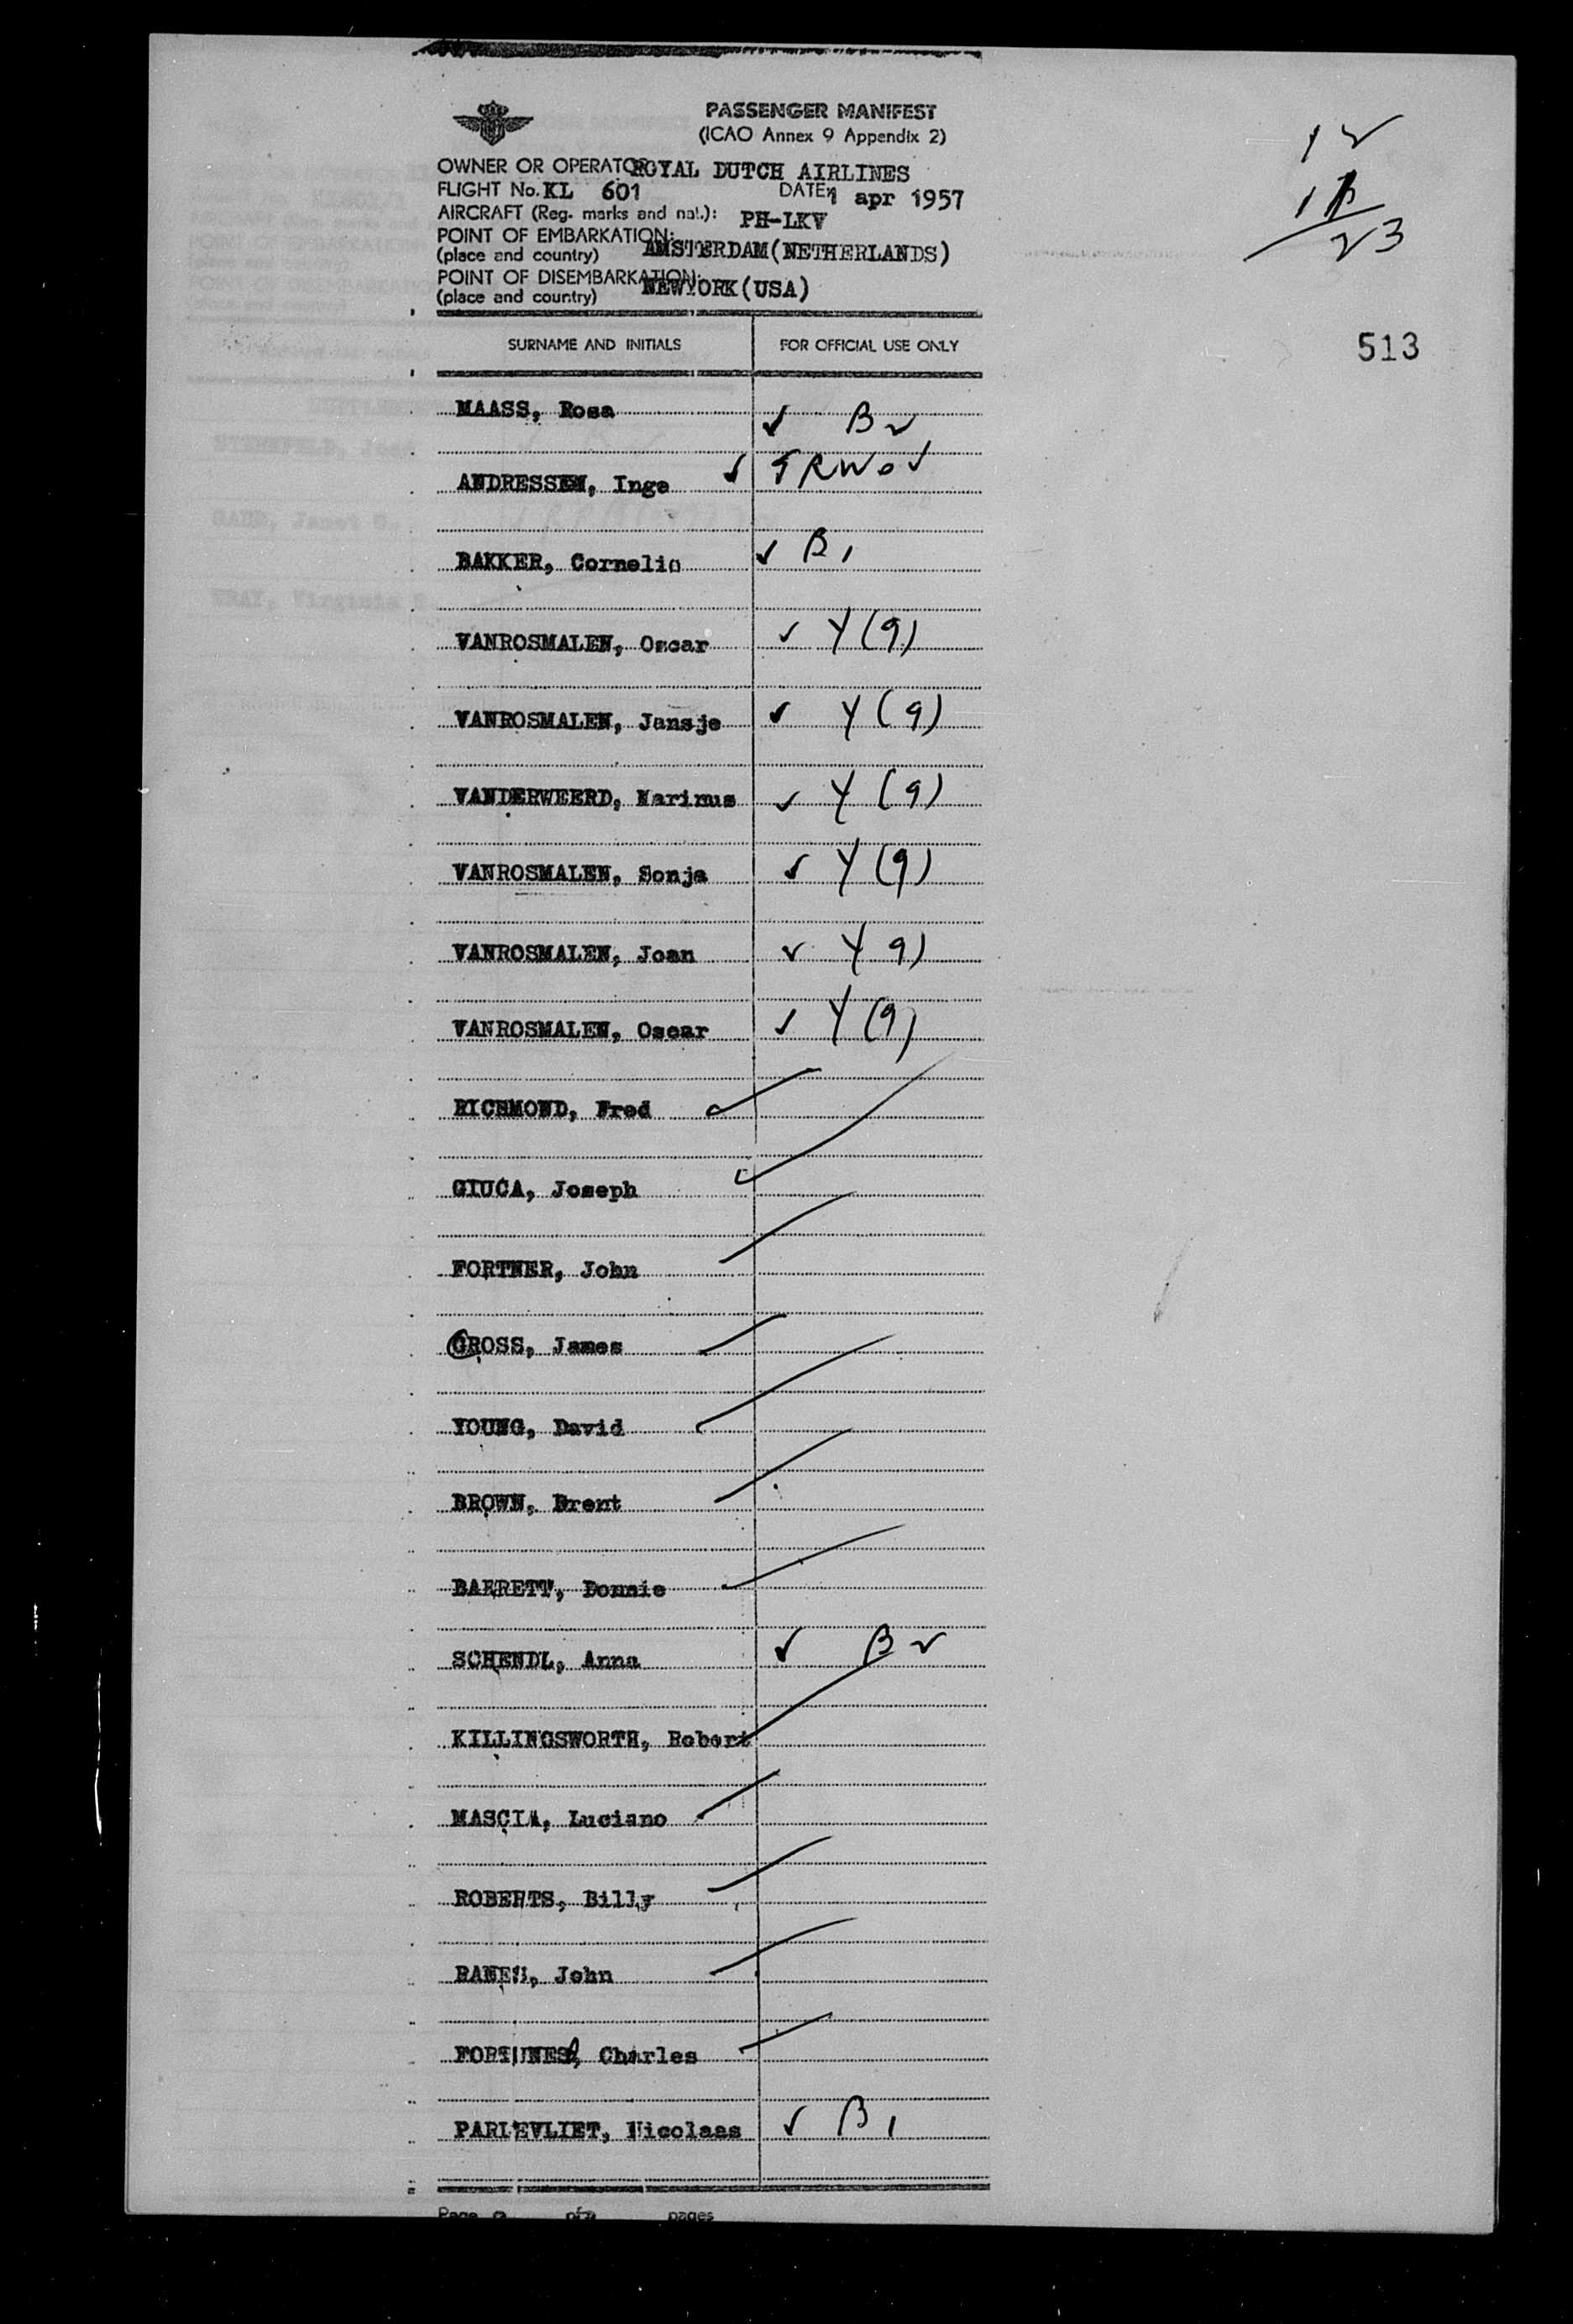 PASSENGER MANIFEST
(ICAO Annex 9 Appendix 2)
OWNER OR OPERATOR ROYAL DUTCH AIRLINES
FLIGHT No. KL 601 DATE: 1 apr 1957
AIRCRAFT (Reg. marks and nat.): PH-LKV
POINT OF EMBARKATION:
(place and country) AMSTERDAM(NETHERLANDS)
POINT OF DISEMBARKATION:
(place and country) NEWYORK(USA)
12
11
23
513
SURNAME AND INITIALS FOR OFFICIAL USE ONLY
MAASS, Rosa ✓ B2
ANDRESSEN, Inge ✓
BAKKER, Cornelis ✓ B1
VANROSMALEN, Oscar ✓ Y(9)
VANROSMALEN, Jansje ✓ Y(9)
VANDERWEERD, Marinus ✓ Y(9)
VANROSMALEN, Sonja ✓ Y(9)
VANROSMALEN, Joan ✓ Y 9)
VANROSMALEN, Oscar ✓ Y(9)
RICHMOND, Fred ✓
GIUCA, Joseph ✓
FORTNER, John ✓
GROSS, James ✓
YOUNG, David ✓
BROWN, Brent ✓
BARRETT, Donnie ✓
SCHENDL, Anna ✓ B2
KILLINGSWORTH, Robert ✓
MASCIA, Luciano ✓
ROBERTS, Billy ✓
John ✓
Charles ✓
PARLEVLIET, Nicolaas ✓ B1
Page 2 of pages